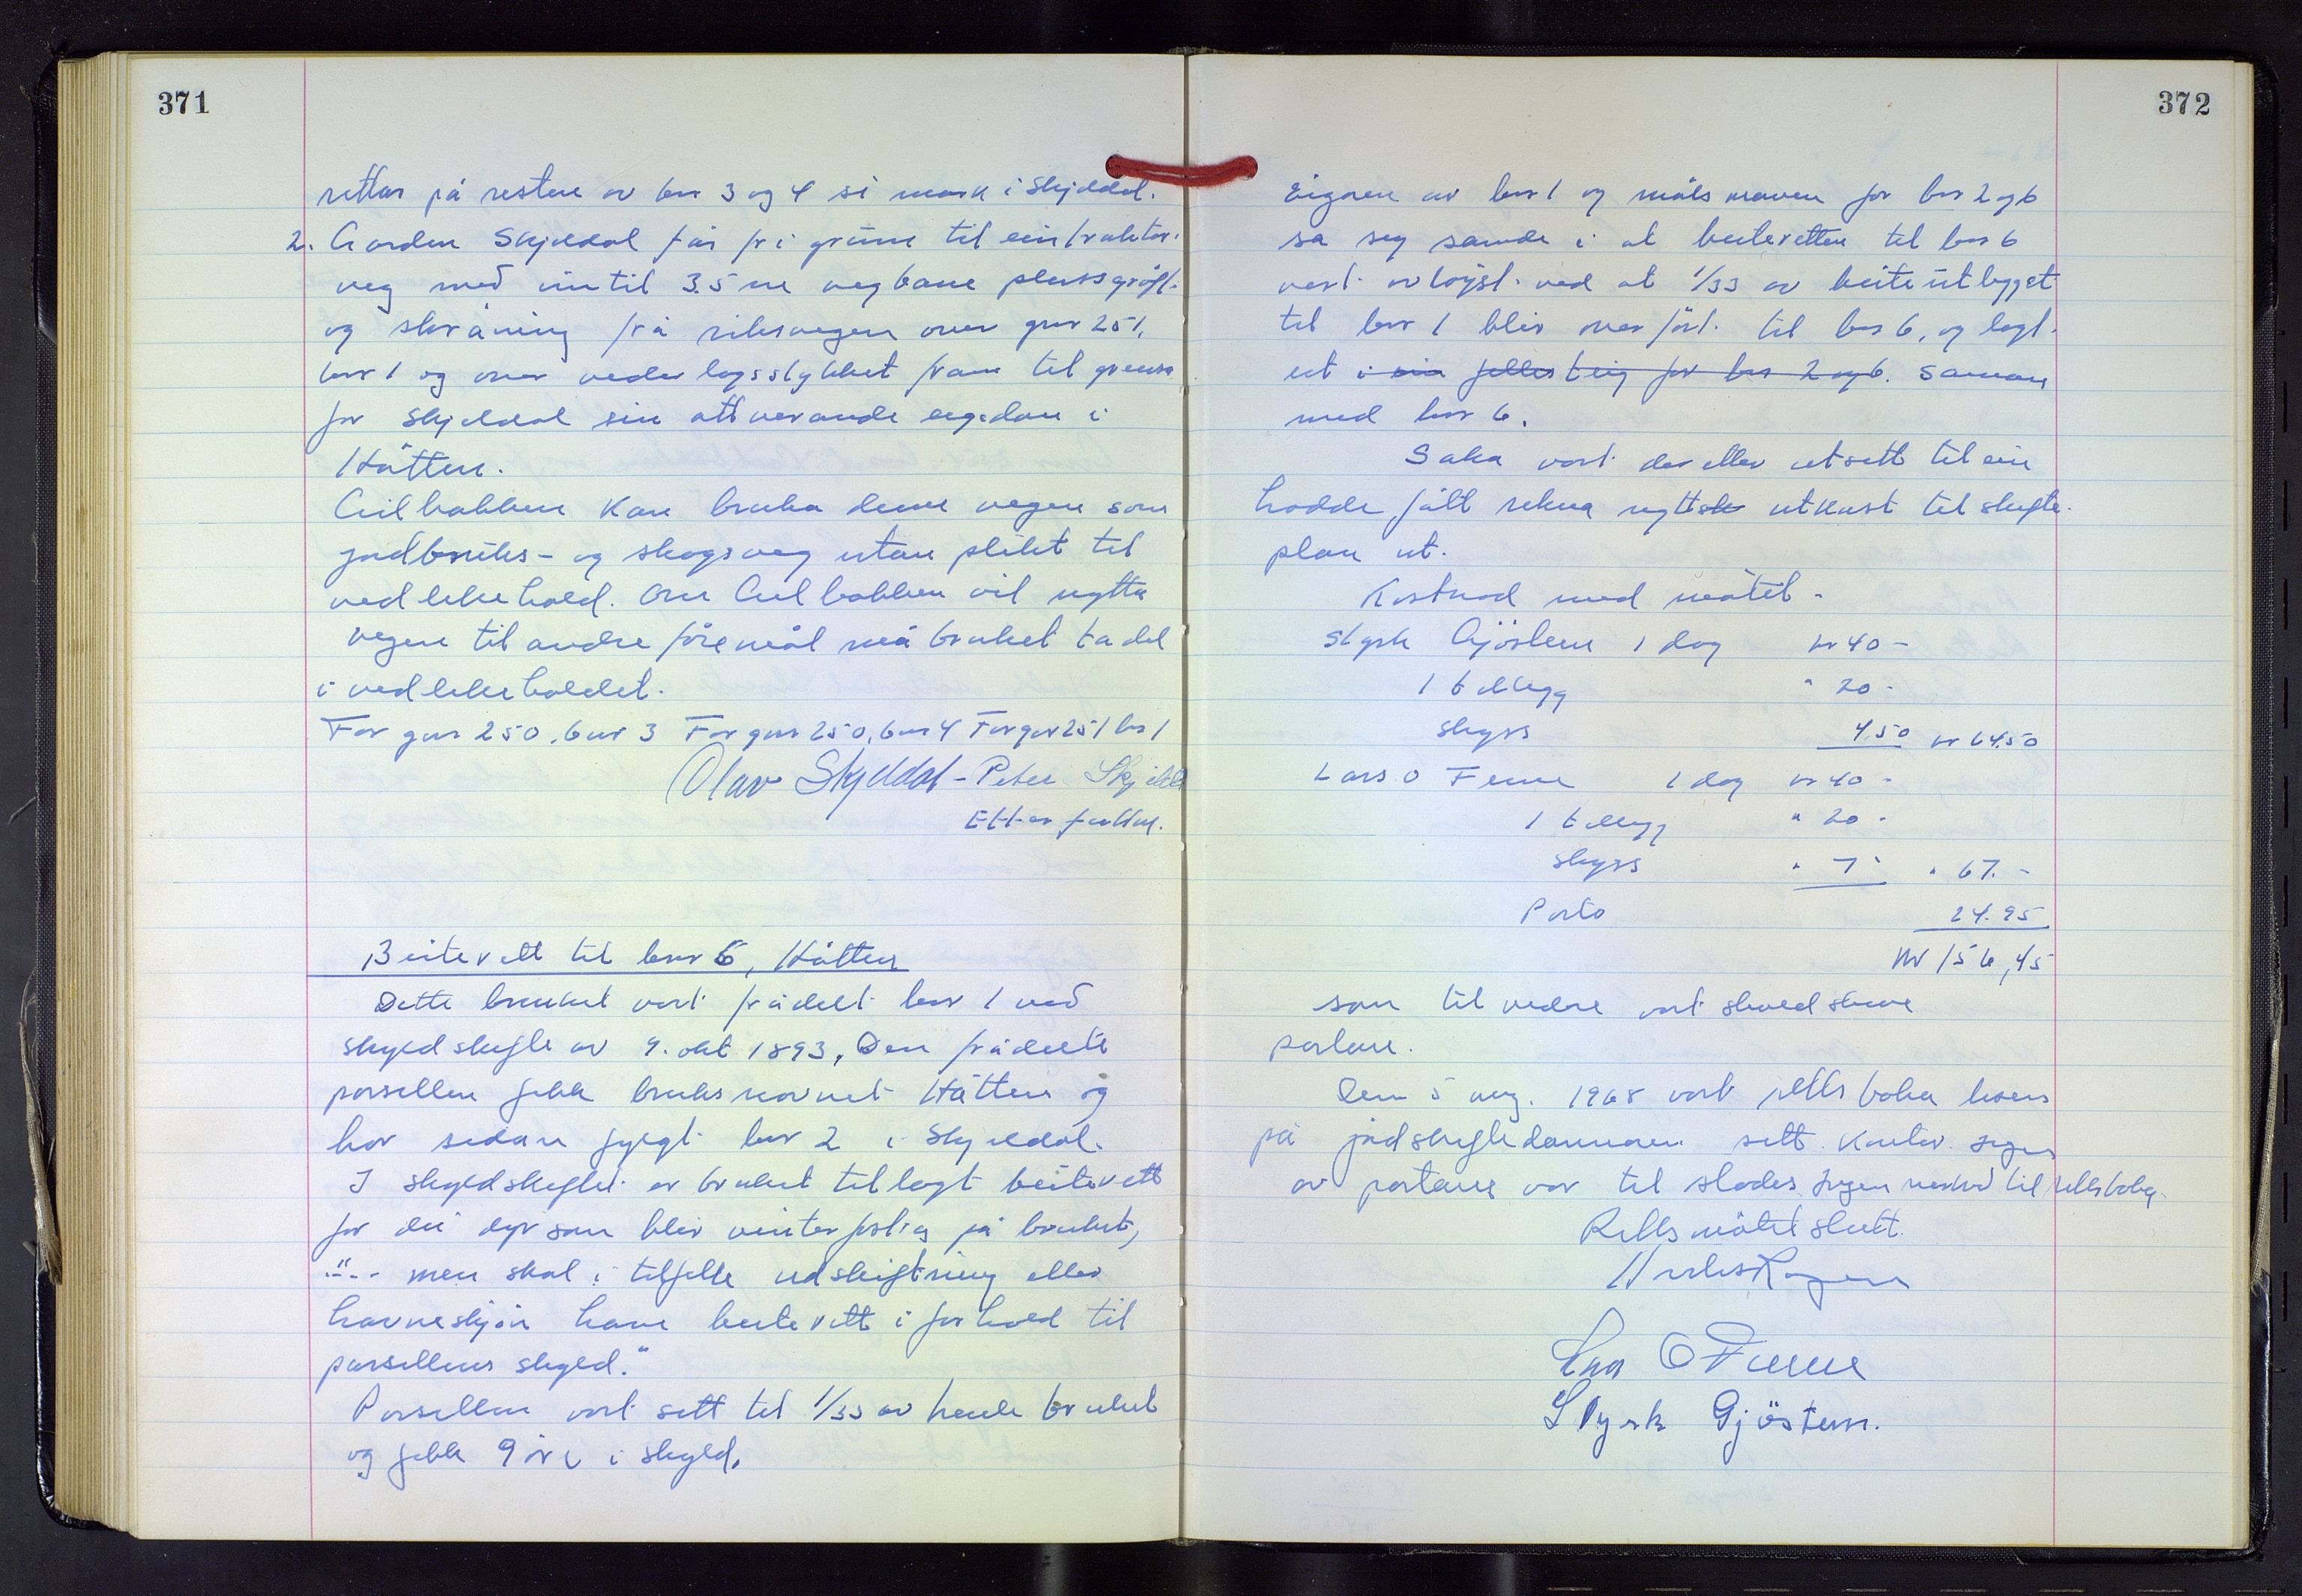 371
rettar på resten av bnr 3 og 4 si mark i Skjeldal.
2. Garden Skjeldal får fri grunn til ein traktor-
veg med inntil 3.5 m vegbane pluss grøft
og skråning frå riksvegen over gnr 251,
bnr 1 og over vederlagsstykket fram til grensa
for Skjeldal sin attverande eigedom i
Håtten.
kan bruka denne vegen som
jordbruks- og skogsveg utan plikt til
vedlikehald. Om vil nytta
vegen til andre føremål må bruket ta del
i vedlikehaldet.
For gnr 250, bnr 3 For gnr 250, bnr 4 For gnr 251 bnr 1
Olav Skjeldal - Peter Skjeldal
Etter fullm.
Beiterett til bnr 6, Håtten
Dette bruket vart frådelt bnr 1 ved
skyldskifte av 9. okt 1893. Den frådelte
parsellen fekk bruksnavnet Håtten og
har sidan fylgt bnr 2 i Skjeldal.
I skyldskiftet er bruket tillagt beiterett
for dei dyr som blir vinterfostra på bruket,
"... men skal i tilfelle udskiftning eller
havneskjøn have beiterett i forhold til
parsellens skyld."
Parsellen vart sett til 1/33 av heile bruket
og fekk 9 øre i skyld.
372
Eigaren av bnr 1 og målsmannen for bnr 2 og 6
sa seg samde i at beiteretten til bnr 6
vert avløyst ved at 1/33 av beiteutlegget
til bnr 1 blir overført til bnr 6, og lagt
ut i ein felles teig for bnr 2 og 6. saman
med bnr 6.
Saka vart deretter utsett til ein
hadde fått rekna nytt utkast til skifte-
plan ut.
Kostnad med møtet.
Styrk Gjøstein 1 dag kr 40 -
1 tillegg " 20 -
skyss 4.50 kr 64.50
Lars O Finne 1 dag kr 40 -
1 tillegg " 20 -
skyss " 7 - " 67. -
Porto 24.95
kr 156,45
som til vedre vart
partane.
Den 5 aug. 1968 vart rettsboka
på jordskiftedommaren sitt kontor. Ingen
av partane var til stades. Ingen merknad til rettsboka.
Rettsmøtet slutt.
Lars O Finne
Styrk Gjøstein.